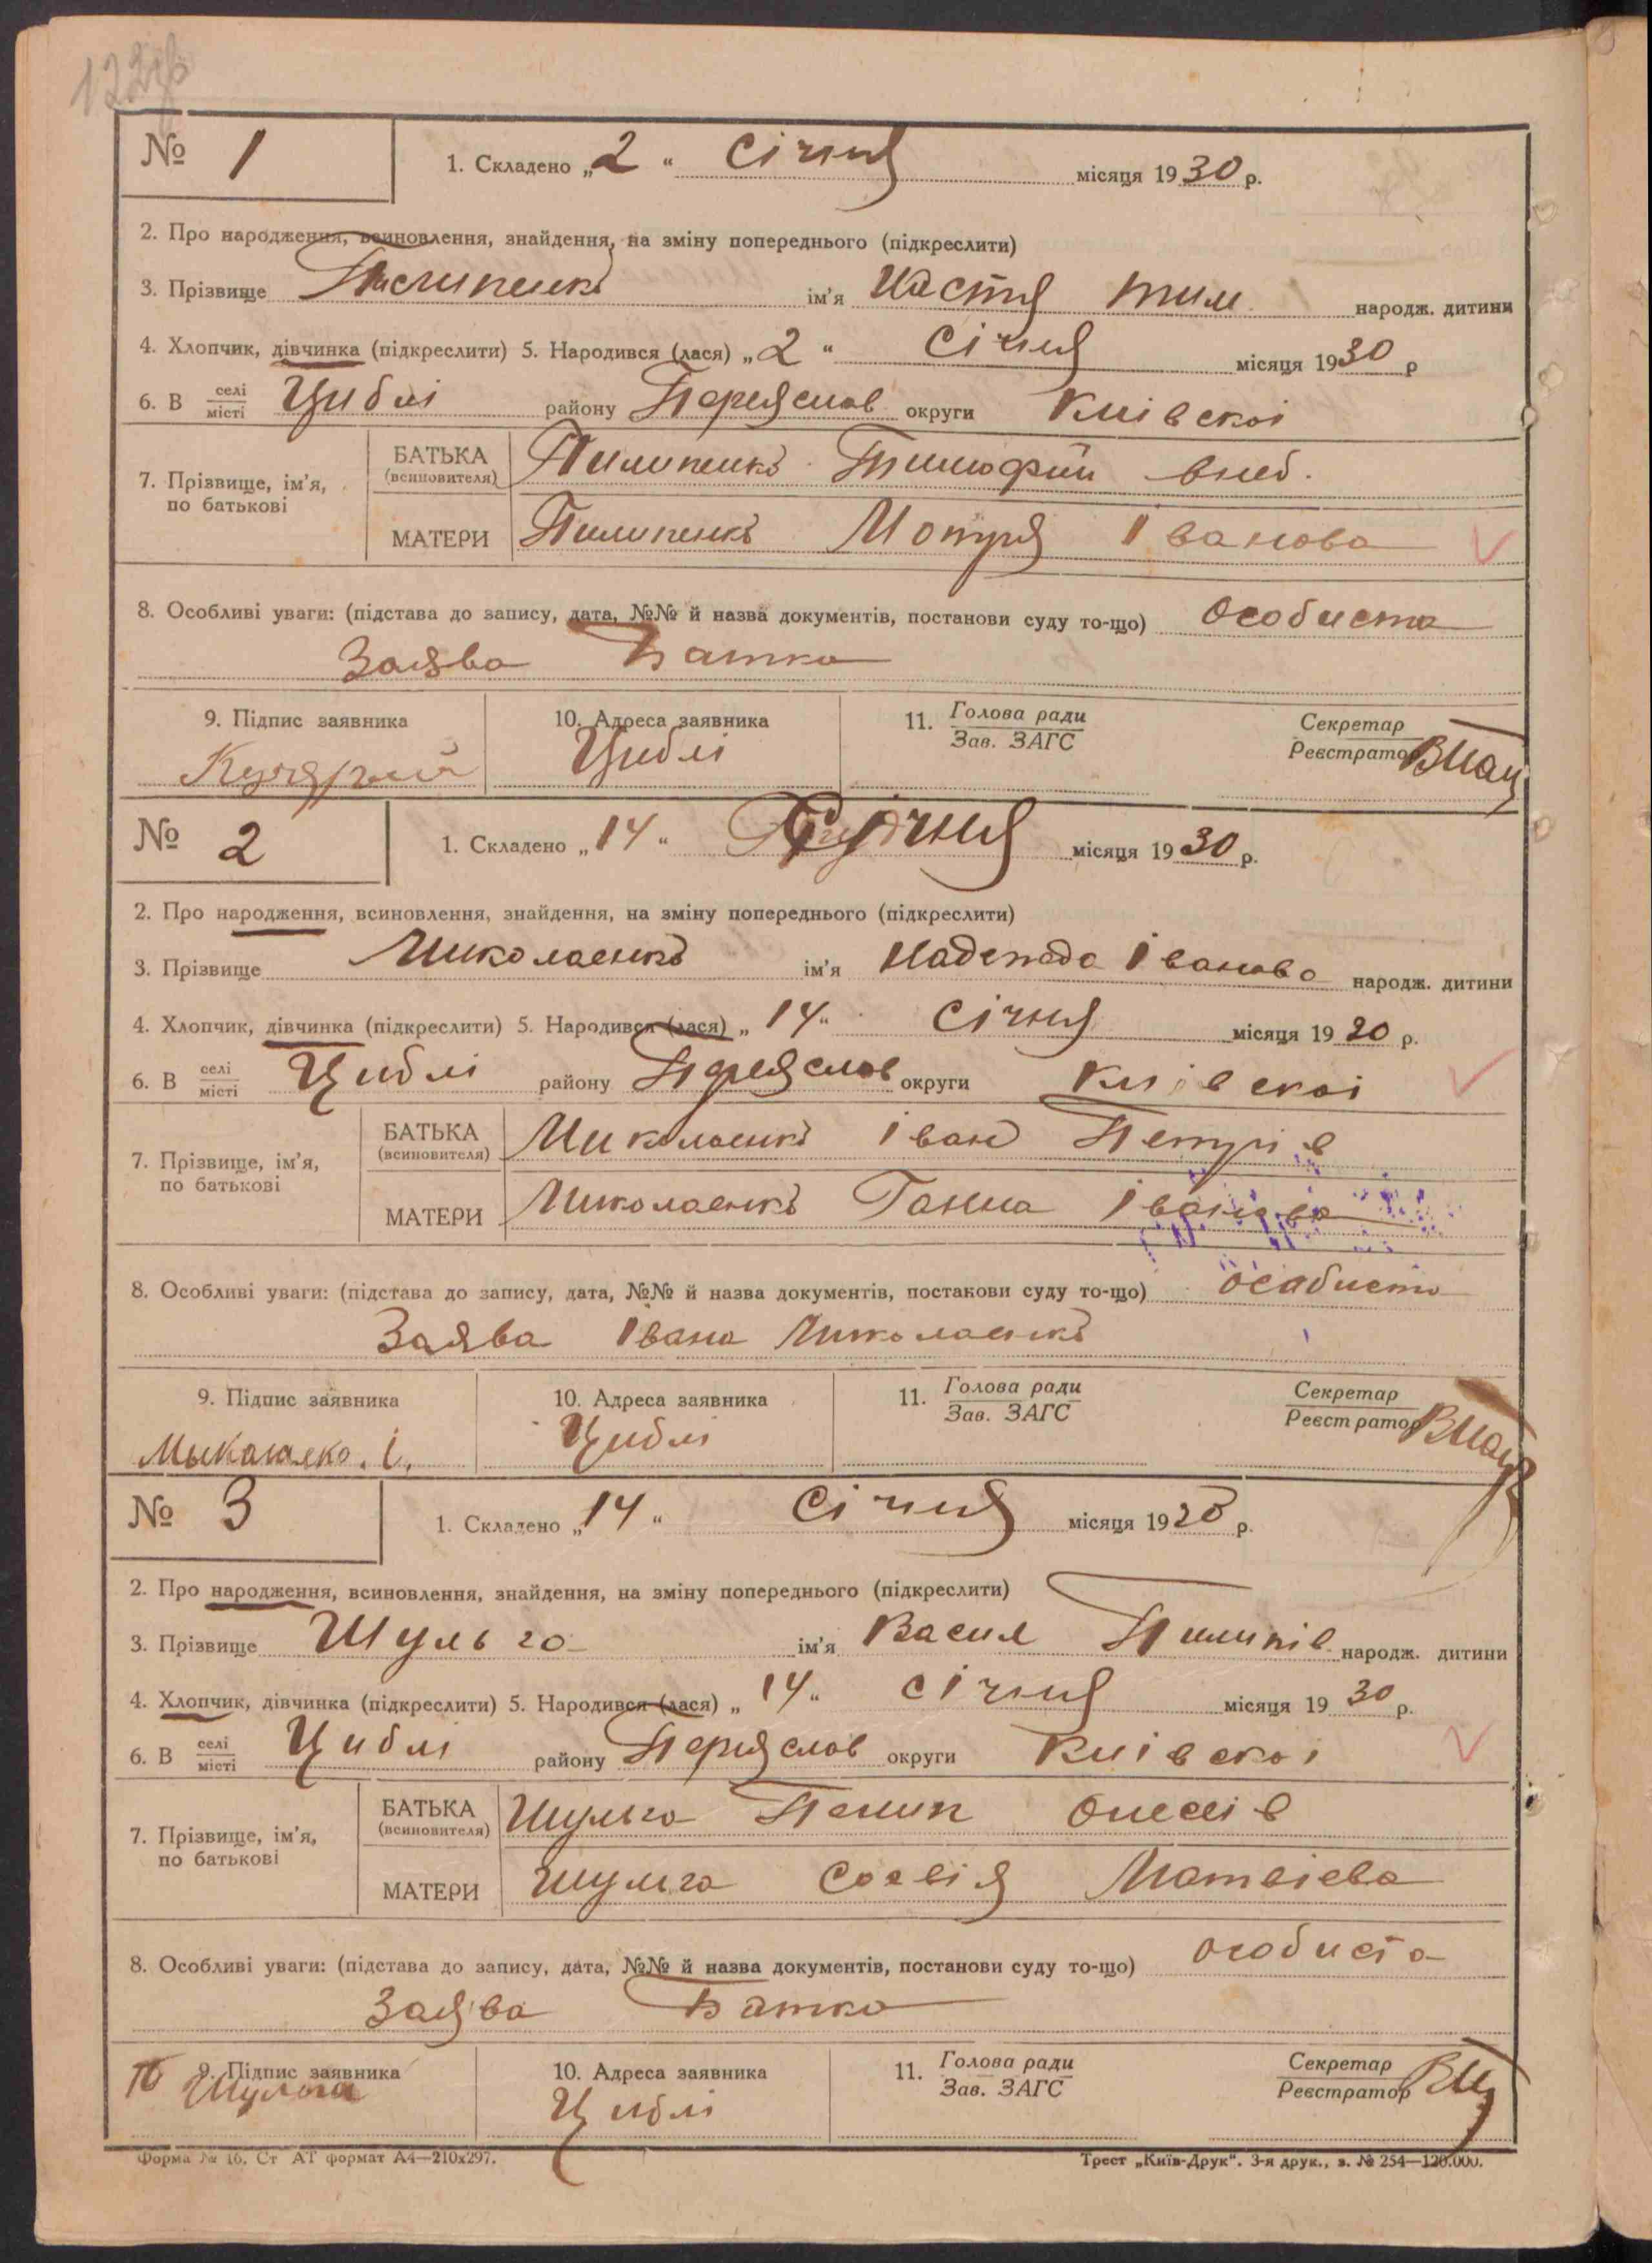 № 1 1. Складено „2“ Січня місяця 1930 р.
2. Про народження, всиновлення, знайдення, на зміну попереднього (підкреслити)
3. Прізвище Пилипенко ім'я Настя Тим. народж. дитини
4. Хлопчик, дівчинка (підкреслити) 5. Народився (лася) „2“ Січня місяця 1930 р
6. В селі місті Циблі району Переяслав округи Київскоі
7. Прізвище, ім'я, по батькові
БАТЬКА (всиновителя) Пилипенко Тимофий
МАТЕРИ Пилипенко Мотря Іванова
8. Особливі уваги: (підстава до запису, дата, №№ й назва документів, постанови суду то-що) Особиста
Заява Батка
9. Підпис заявника 10. Адреса заявника 11. Голова ради Зав. ЗАГС Секретар Реєстратор
Циблі
№ 2 1. Складено „14“ Січня місяця 1930 р.
2. Про народження, всиновлення, знайдення, на зміну попереднього (підкреслити)
3. Прізвище Миколаенко ім'я Надежда Іванова народж. дитини
4. Хлопчик, дівчинка (підкреслити) 5. Народився (лася) „14“ Січня місяця 1930 р.
6. В селі місті Циблі району Переяслав округи Київскоі
7. Прізвище, ім'я, по батькові
БАТЬКА (всиновителя) Миколаенко Іван Петрів
МАТЕРИ Миколаенко Ганна Іванова
8. Особливі уваги: (підстава до запису, дата, №№ й назва документів, постанови суду то-що) Особиста
Заява Івана Миколаенко
9. Підпис заявника 10. Адреса заявника 11. Голова ради Зав. ЗАГС Секретар Реєстратор
Циблі
№ 3 1. Складено „14“ Січня місяця 1930 р.
2. Про народження, всиновлення, знайдення, на зміну попереднього (підкреслити)
3. Прізвище Шульга ім'я Васил Пилипів народж. дитини
4. Хлопчик, дівчинка (підкреслити) 5. Народився (лася) „14“ січня місяця 1930 р.
6. В селі місті Циблі району Переяслав округи Київскоі
7. Прізвище, ім'я, по батькові
БАТЬКА (всиновителя) Шульга Пилип
МАТЕРИ Шульга Софія Матвієва
8. Особливі уваги: (підстава до запису, дата, №№ й назва документів, постанови суду то-що) особиста
Заява Батка
9. Підпис заявника 10. Адреса заявника 11. Голова ради Зав. ЗАГС Секретар Реєстратор
Шульга Циблі
Форма № 16. Ст АТ формат А4—210х297. Трест „Київ-Друк“. 3-я друк., з. № 254—120.000.